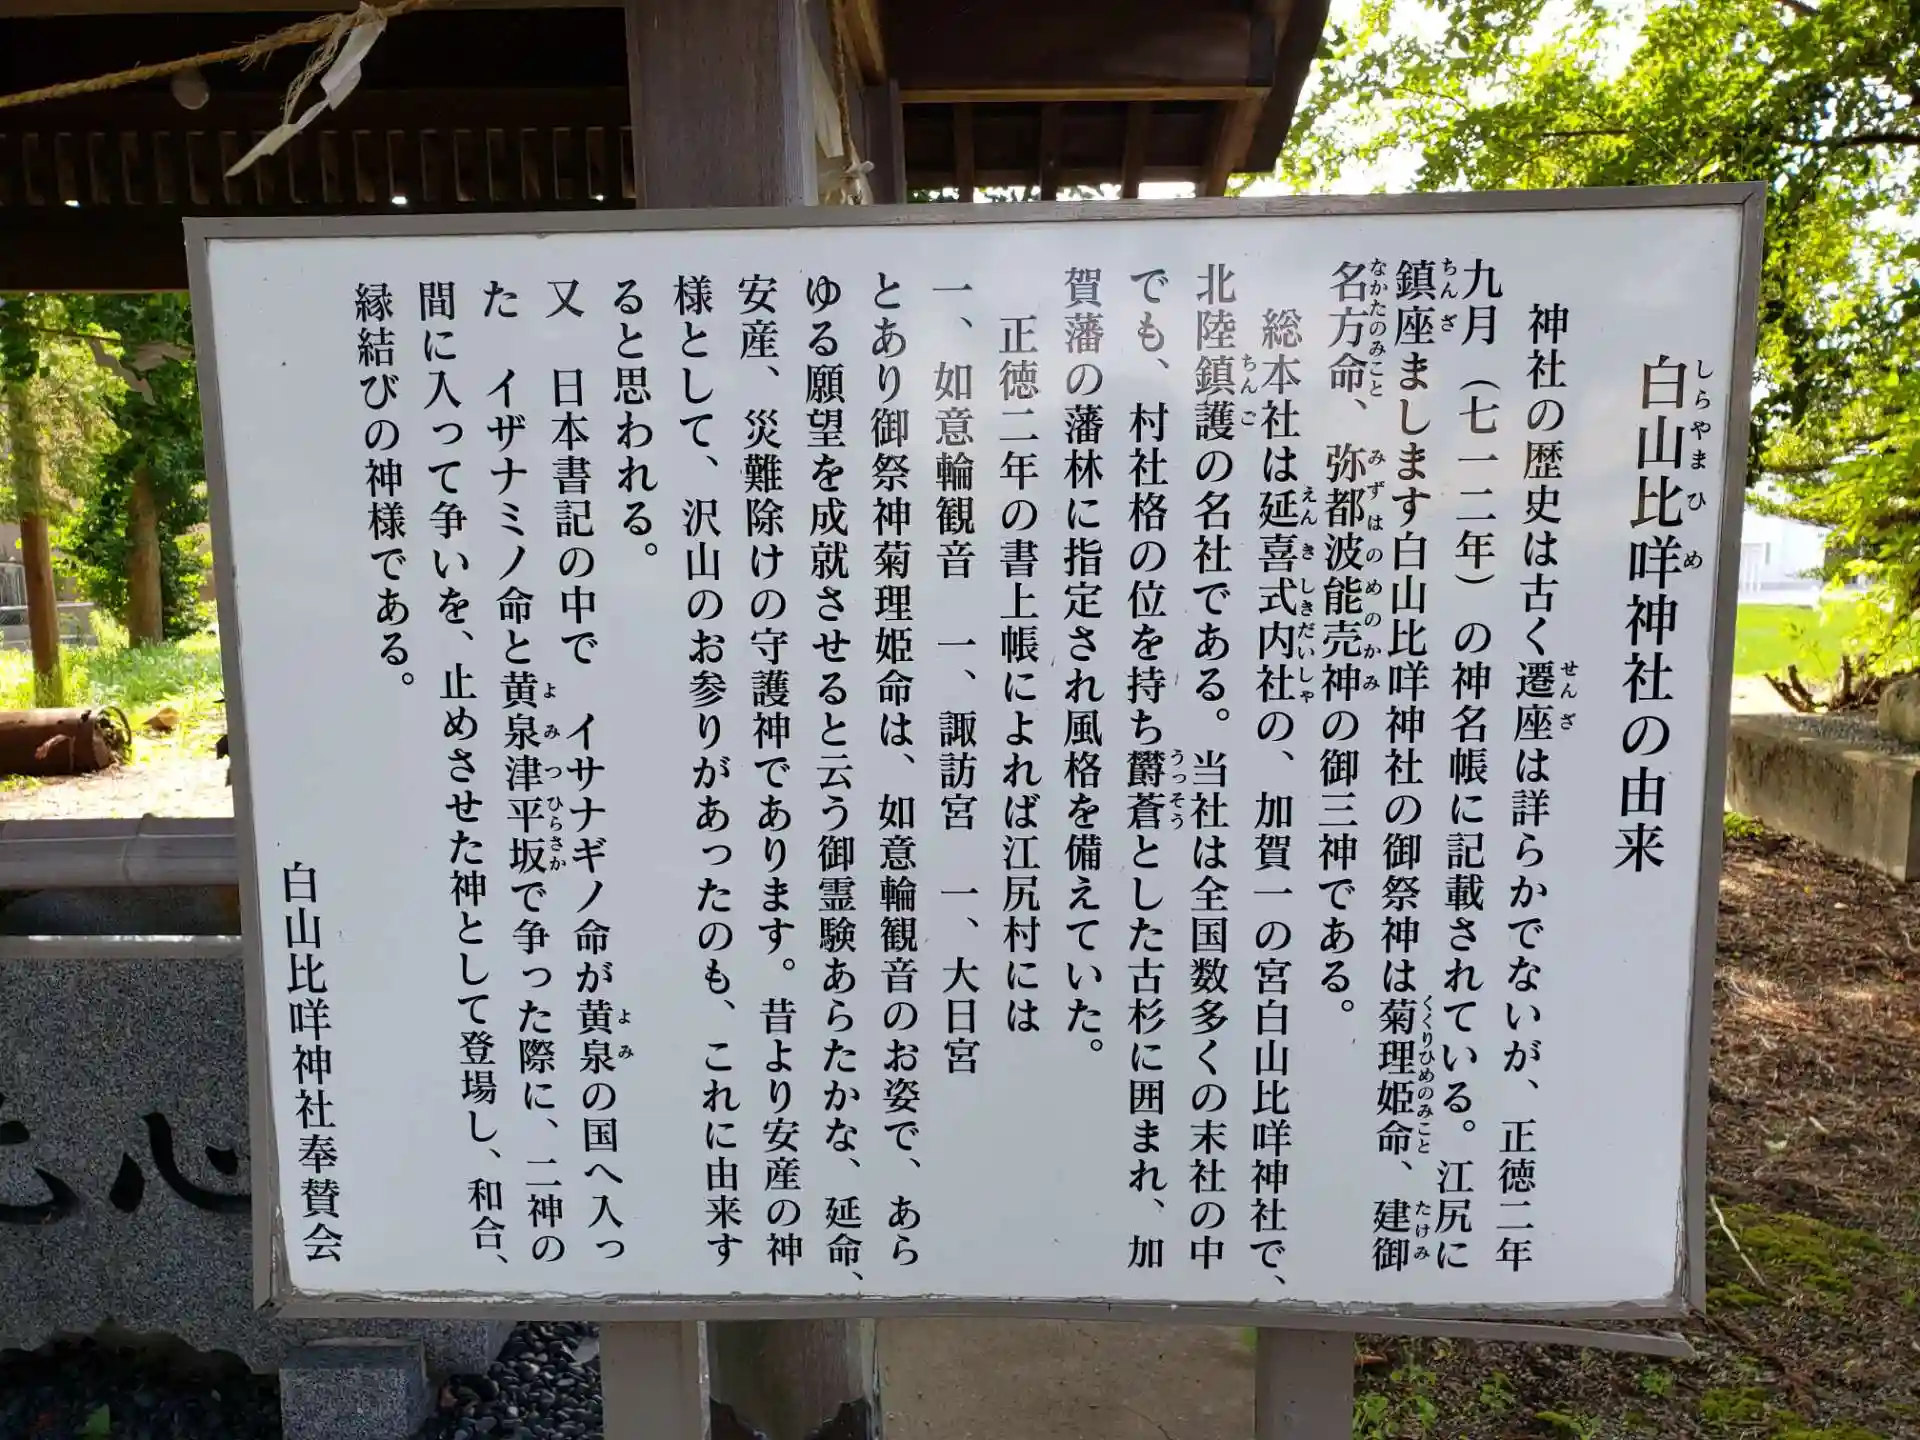 白山比咩神社の由来
しらやまひめ
神社の歴史は古く遷座は詳らかでないが、正徳二年
せんざ
九月（七一二年）の神名帳に記載されている。江尻に
鎮座まします白山比咩神社の御祭神は菊理姫命、建御
ちんざ
くくりひめのみこと
たけみ
名方命、弥都波能売神の御三神である。
なかたのみこと
みずはのめのかみ
総本社は延喜式内社の、加賀一の宮白山比咩神社で、
えんきしきだいしゃ
北陸鎮護の名社である。当社は全国数多くの末社の中
ちんご
でも、村社格の位を持ち欝蒼とした古杉に囲まれ、加
うっそう
賀藩の藩林に指定され風格を備えていた。
正徳二年の書上帳によれば江尻村には
一、如意輪観音　一、諏訪宮　一、大日宮
とあり御祭神菊理姫命は、如意輪観音のお姿で、あら
ゆる願望を成就させると云う御霊験あらたかな、延命、
安産、災難除けの守護神であります。昔より安産の神
様として、沢山のお参りがあったのも、これに由来す
ると思われる。
又　日本書記の中で　イサナギノ命が黄泉の国へ入っ
よみ
た　イザナミノ命と黄泉津平坂で争った際に、二神の
よみつひらさか
間に入って争いを、止めさせた神として登場し、和合、
縁結びの神様である。
白山比咩神社奉賛会
心